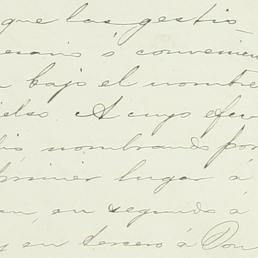 que las gestio
esario ó convenien
bajo el nombre
A cuyo efec
nombrando por
primer lugar á
en segundo á
y en tercero á Don